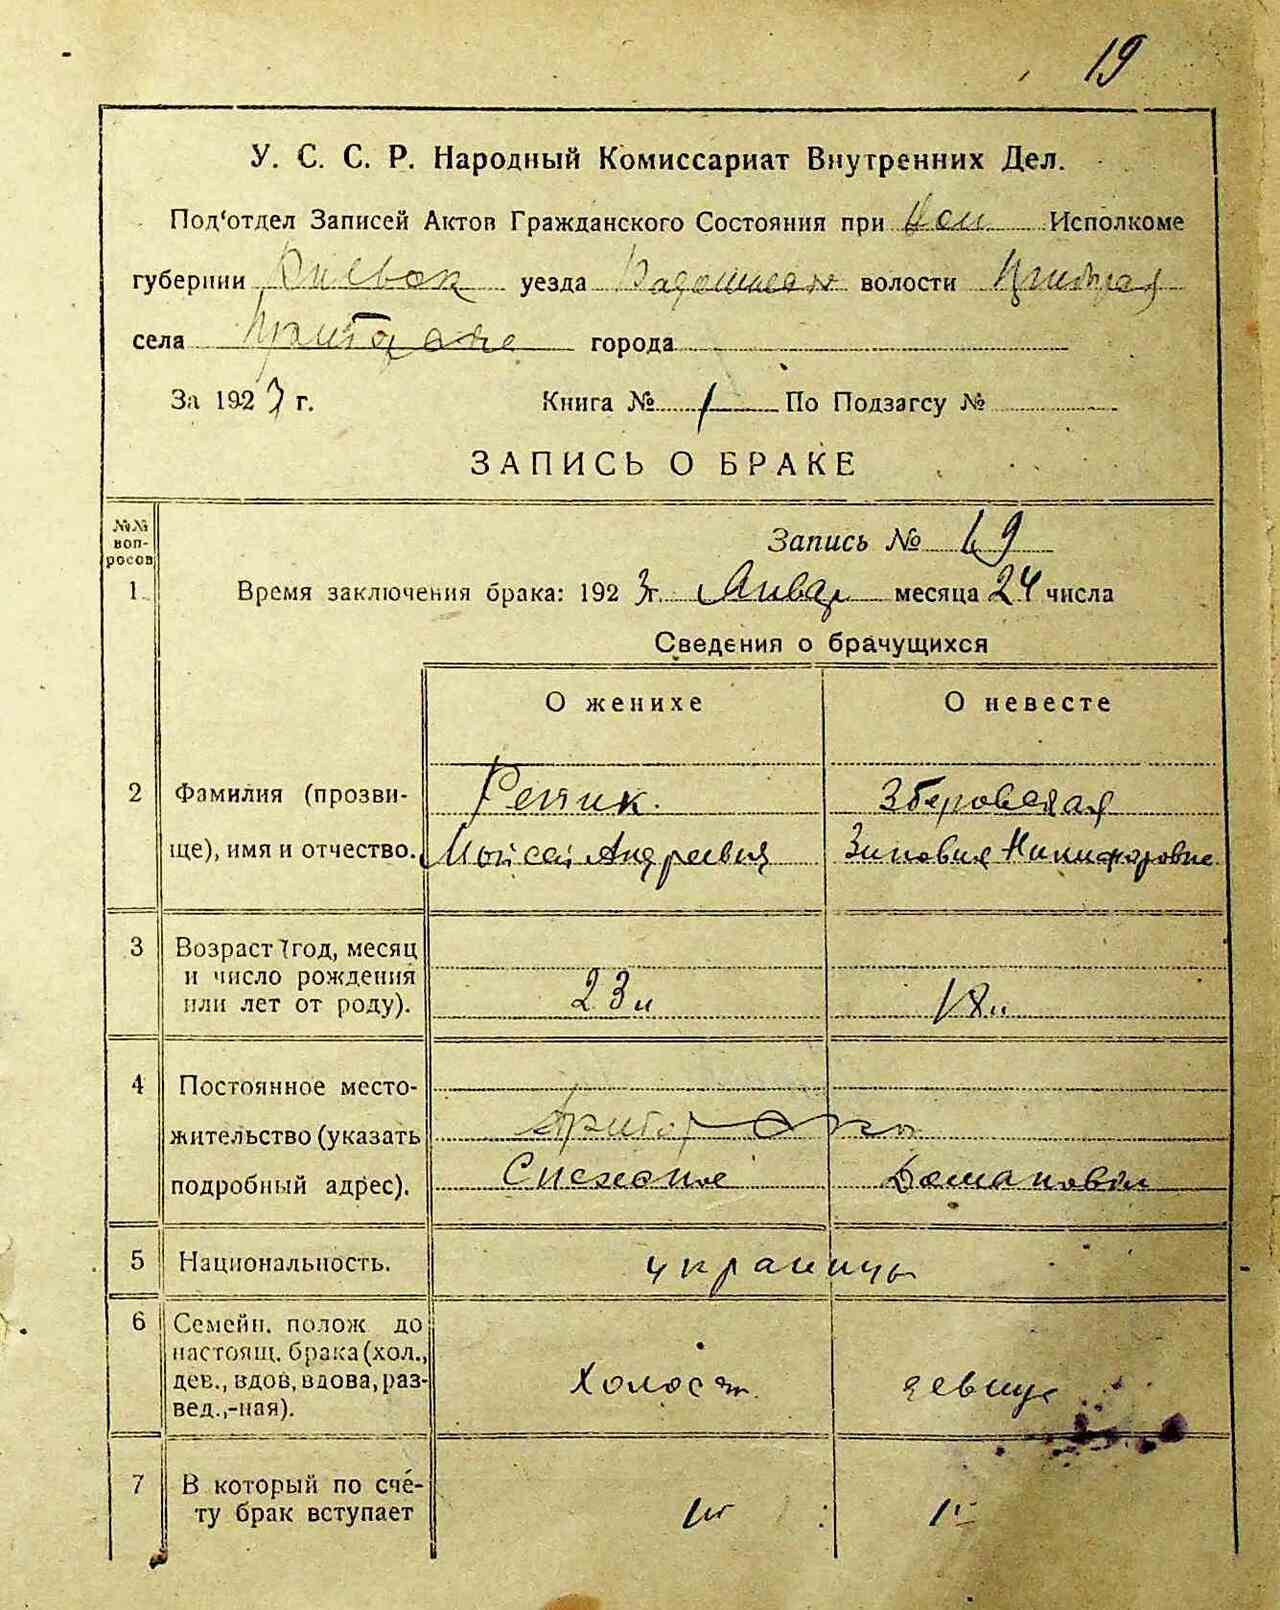 19
У. С. С. Р. Народный Комиссариат Внутренних Дел.
Под‘отдел Записей Актов Гражданского Состояния при Исполкоме
губернии уезда волости
села города
За 1923 г. Книга № 1 По Подзагсу №
ЗАПИСЬ О БРАКЕ
№№ воп-
росов
Запись № 19
1 Время заключения брака: 1923 г. Январ месяца 24 числа
Сведения о брачущихся
О женихе О невесте
2 Фамилия (прозви- Репик. Зберовская
ще), имя и отчество. Мойсей Андреевич Зиновия Никифоровне
3 Возраст (год, месяц
и число рождения
или лет от роду). 23 л 18 л
4 Постоянное место-
жительство (указать
подробный адрес).
5 Национальность. украинцы
6 Семейн. полож до
настоящ. брака (хол.,
дев., вдов, вдова, раз- холост. девица
вед.,-ная).
7 В который по счё-
ту брак вступает 1й 1й